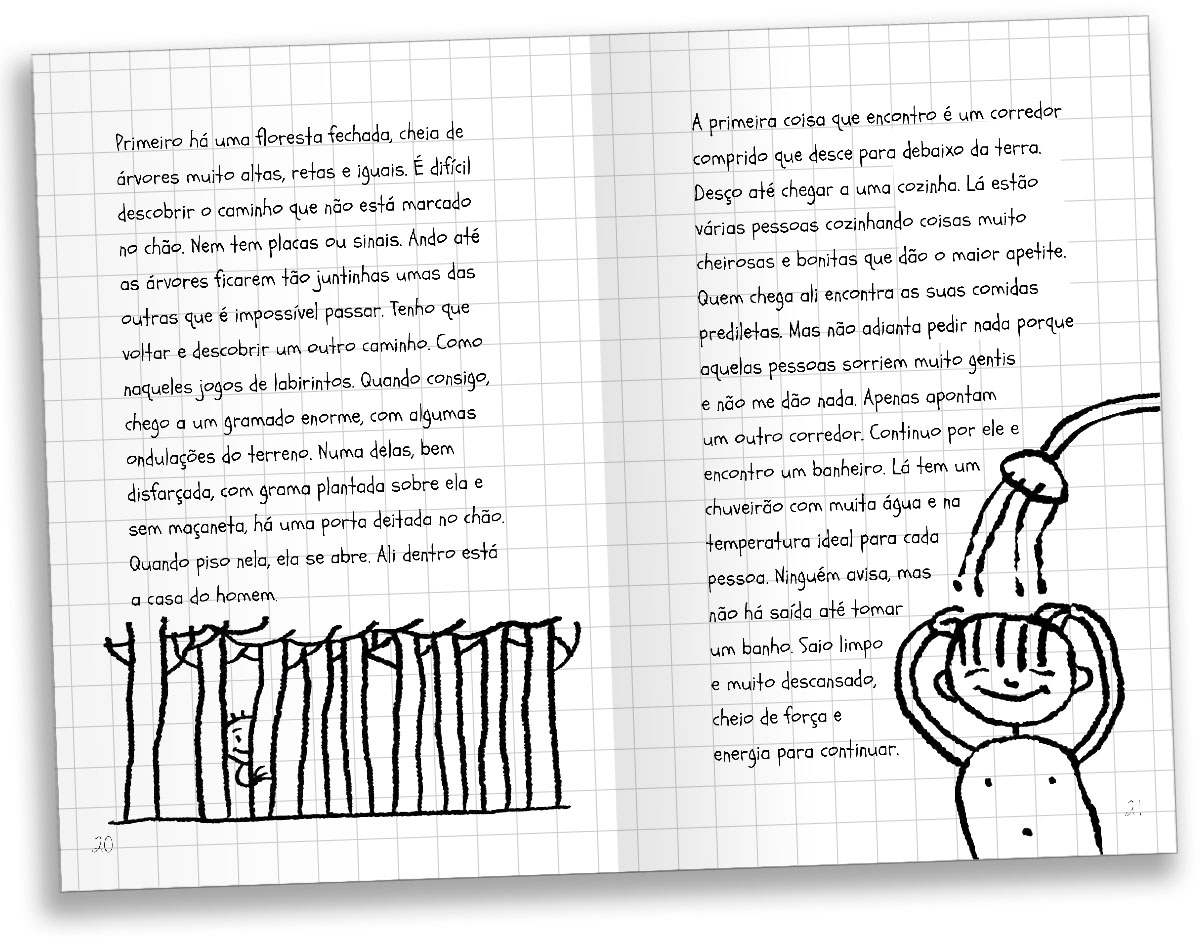 Primeiro há uma floresta fechada, cheia de
árvores muito altas, retas e iguais. É difícil
descobrir o caminho que não está marcado
no chão. Nem tem placas ou sinais. Ando até
as árvores ficarem tão juntinhas umas das
outras que é impossível passar. Tenho que
voltar e descobrir um outro caminho. Como
naqueles jogos de labirintos. Quando consigo,
chego a um gramado enorme, com algumas
ondulações do terreno. Numa delas, bem
disfarçada, com grama plantada sobre ela e
sem maçaneta, há uma porta deitada no chão.
Quando piso nela, ela se abre. Ali dentro está
a casa do homem.
20
A primeira coisa que encontro é um corredor
comprido que desce para debaixo da terra.
Desço até chegar a uma cozinha. Lá estão
várias pessoas cozinhando coisas muito
cheirosas e bonitas que dão o maior apetite.
Quem chega ali encontra as suas comidas
prediletas. Mas não adianta pedir nada porque
aquelas pessoas sorriem muito gentis
e não me dão nada. Apenas apontam
um outro corredor. Continuo por ele e
encontro um banheiro. Lá tem um
chuveirão com muita água e na
temperatura ideal para cada
pessoa. Ninguém avisa, mas
não há saída até tomar
um banho. Saio limpo
e muito descansado,
cheio de força e
energia para continuar.
21